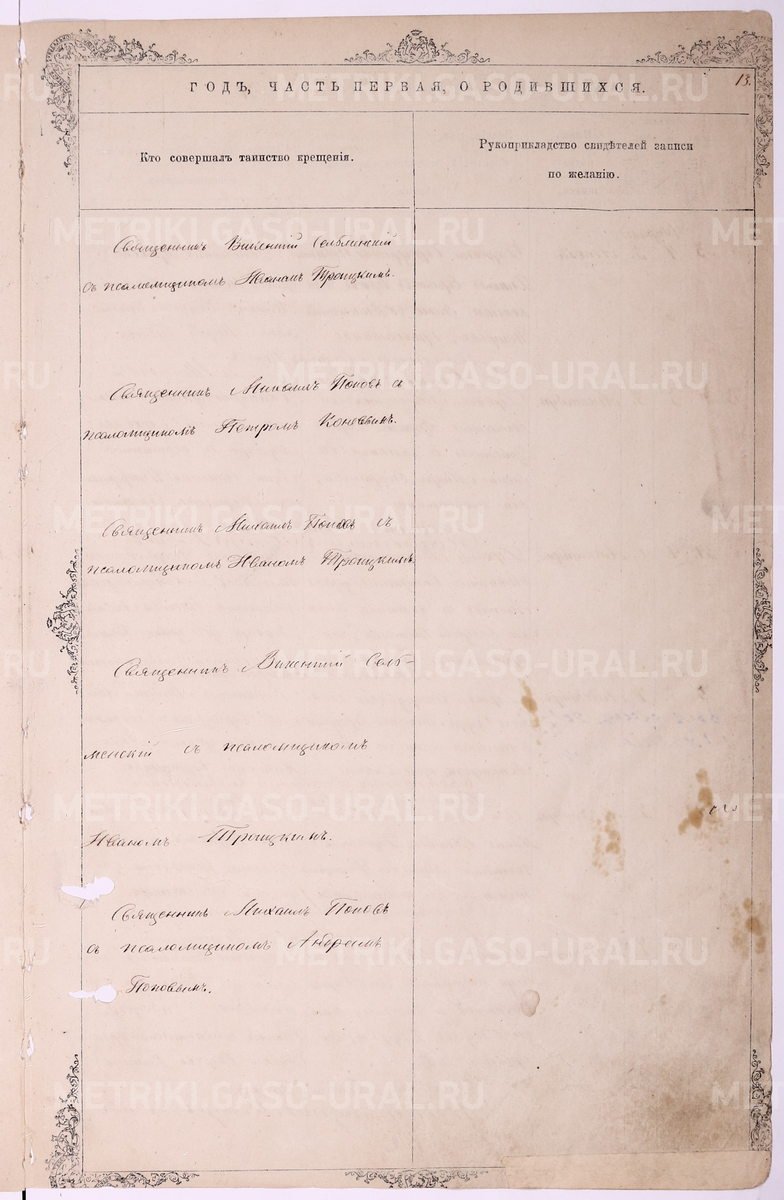 13.
ГОДЪ, ЧАСТЬ ПЕРВАЯ, О РОДИВШИХСЯ.
Кто совершалъ таинство крещенія.
Рукоприкладство свидѣтелей записи
по желанію.
Священникъ Викентій
съ псаломщикомъ Иваномъ Троицкимъ.
Священникъ Михаилъ Поповъ съ
псаломщикомъ Петромъ
Священникъ Михаилъ Поповъ съ
псаломщикомъ Иваномъ Троицкимъ
Священникъ Викентій Селб-
менскій съ псаломщикомъ
Иваномъ Троицкимъ.
Священникъ Михаилъ Поповъ
съ псаломщикомъ Андреемъ
Поповымъ.
METRIKI.GASO-URAL.RU